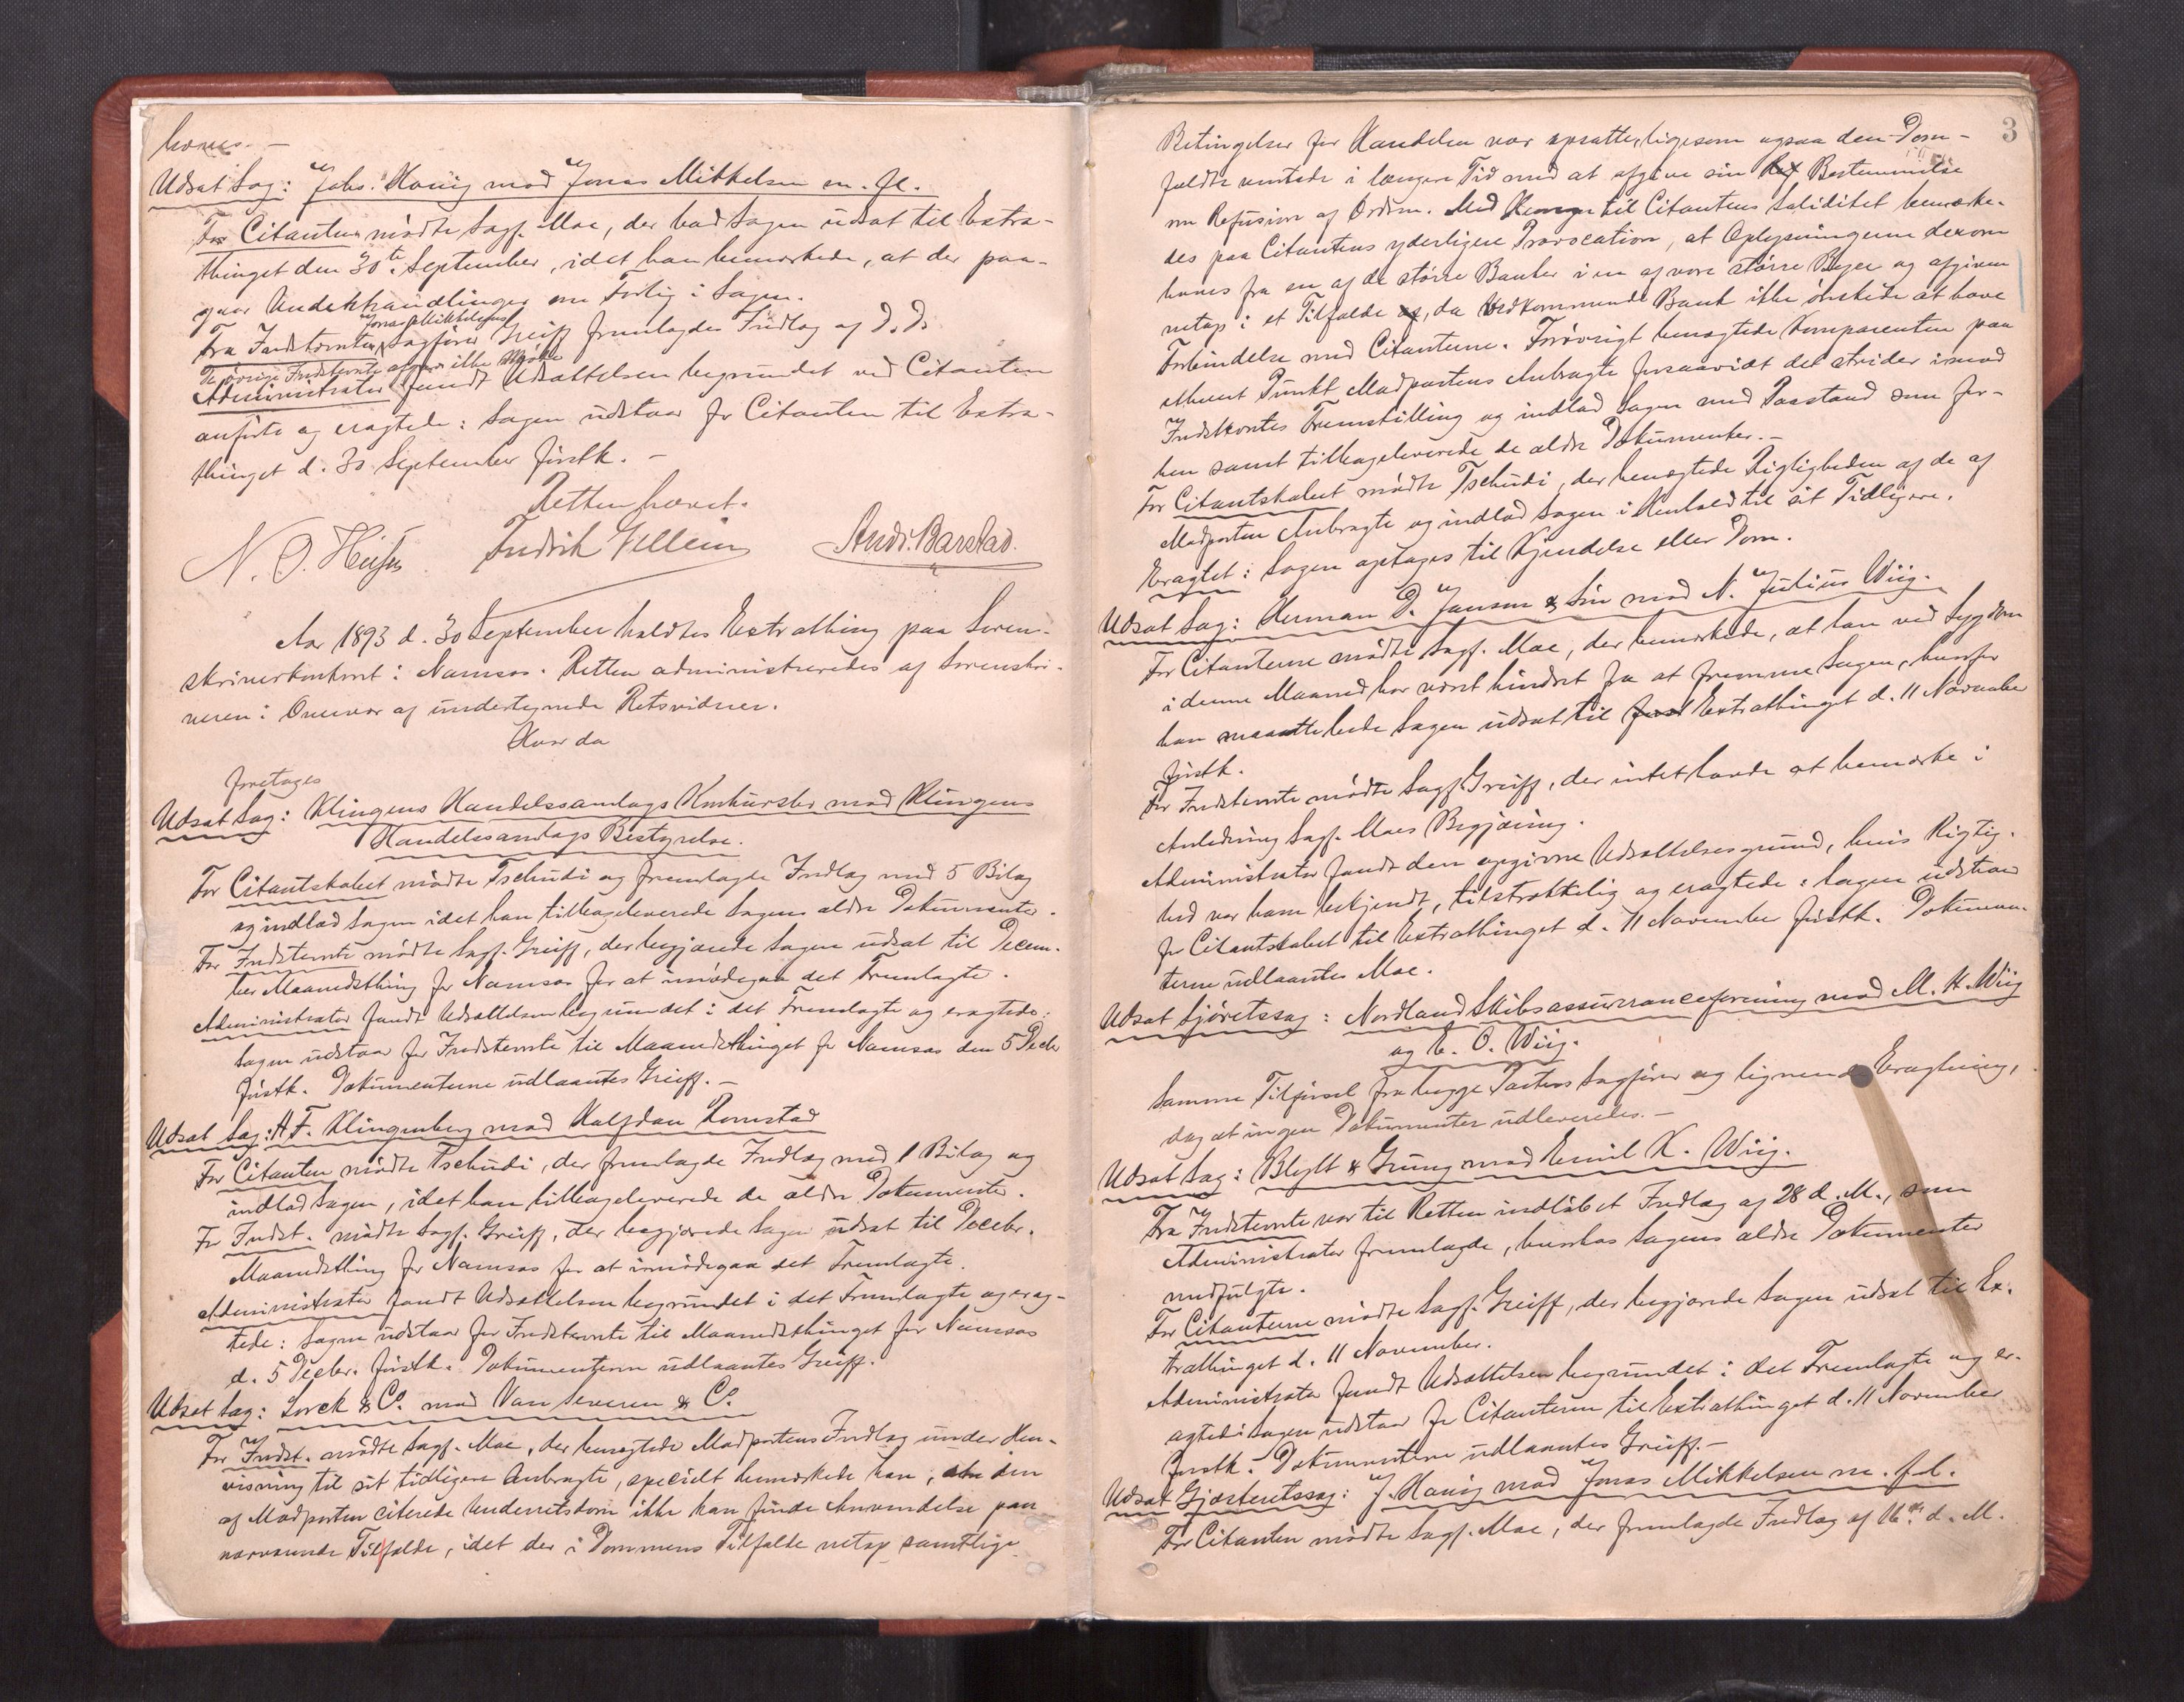 haves. —
Udsat Sag: Johs. Hønig mod Jonas Mikkelsen m. fl.
For Citanten mødte Sagf. Moe, der bad Sagen udsat til Extra-
thinget den 30te September, idet han bemærkede, at der paa-
gaar Underhandlinger om Forlig i Sagen.
Fra Indstævnte Jonas Mikkelsens Sagfører Greiff fremlagdes Indlæg af D. D.
De øvrige Indstævnte afgav ikke Møde
Administrator fandt Udsættelsen begrundet ved Citanten
anførte og eragtede: Sagen udstaar for Citanten til Extra-
thinget d. 30 September førstk. —
Retten hævet.
N. O. Fredrik Gellein Andr. Barstad.
Aar 1893 d. 30 September holdtes Extrathing paa Soren-
skriverkontoret i Namsos. Retten administreredes af Sorenskri-
veren i Overvær af undertegnede Retsvidner.
Hvor da
foretages
Udsat Sag: Klingens Handelssamlags Konkursbo mod Klingens
Handelssamlags Bestyrelse.
For Citantskabet mødte Tschudi og fremlagde Indlæg med 5 Bilag
og indlod Sagen idet han tilbageleverede Sagens ældre Dokumenter.
For Indstevnte mødte Sagf. Greiff, der begjærede Sagen udsat til Decem-
ber Maanedsthing for Namsos for at imødegaa det Fremlagte.
Administrator fandt Udsættelsen begrundet i det Fremlagte og eragtede:
Sagen udstaar for Indstevnte til Maanedsthinget for Namsos den 5 Decbr
førstk. Dokumenterne udlaantes Greiff. —
Udsat Sag: H F. Klingenberg mod Halfdan Romstad
For Citanten mødte Tschudi, der fremlagde Indlæg med 1 Bilag og
indlod Sagen, idet han tilbageleverede de ældre Dokumenter.
For Indst. mødte Sagf. Greiff, der begjærede Sagen udsat til Decebr.
Maanedsthing for Namsos for at imødegaa det Fremlagte.
Administrator fandt Udsættelsen begrundet i det Fremlagte og erag-
tede: Sagen udstaar for Indstevnte til Maanedsthinget for Namsos
d. 5 Decbr. førstk. Dokumenterne udlaantes Greiff.
Udsat Sag: Lorck & Co. mod Van Severen & Co.
For Indst. mødte Sagf. Moe, der benægtede Modpartens Indlæg under Hen-
visning til sit tidligere Anbragte, specielt bemærkede han, at den
af Modparten citerede Underretsdom ikke kan finde Anvendelse paa
nærværende Tilfælde, idet der i Dommens Tilfælde netop samtlige
3
Betingelser for Handelen var opsatte, ligesom ogsaa den Dom-
fældte ventede i længere Tid med at afgive sin Ref Bestemmelse
om Refusion af Ordren. Med Hensyn til Citantens Soliditet bemærke-
des paa Citantens yderligere Provocation, at Oplysningerne derom
haves fra en af de større Banker i en af vore større Byer og afgiven
netop i et Tilfælde af, da Vedkommende Bank ikke ønskede at have
Forbindelse med Citanterne. Forøvrigt benægtede Komparenten paa
ethvert Punkt Modpartens Anbragte forsaavidt det strider imod
Indstevntes Fremstilling og indlod Sagen med Paastand som før-
hen samt tilbageleverede de ældre Dokumenter. —
For Citantskabet mødte Tschudi, der benægtede Rigtigheden af de af
Modparten Anbragte og indlod Sagen i Henhold til sit Tidligere.
Eragtet: Sagen optages til Kjendelse eller Dom.
Udsat Sag: Herman D. Janson & Søn mod N. Julius Wiig.
For Citanterne mødte Sagf. Moe, der bemærkede, at han ved Sygdom
i denne Maaned har været hindret fra at fremme Sagen, hvorfor
han maatte bede Sagen udsat til Extrathinget d. 11 November
førstk.
For Indstevnte mødte Sagf. Greiff, der intet havde at bemærke i
Anledning Sagf. Moes Begjæring.
Administrator fandt den opgivne Udsættelsesgrund, hvis Rigtig-
hed var ham bekjendt, tilstrækkelig og eragtede: Sagen udstaar
for Citantskabet til Extrathinget d. 11 November førstk. Dokumen-
terne udlaantes Moe.
Udsat Sjøretssag: Nordland Skibsassuranceforening mod M. H. Wiig
og E. O. Wiig.
Samme Tilførsel fra begge Parters Sagfører og lignende Eragtning,
dog at ingen Dokumenter udleveredes. —
Udsat Sag: Blytt & Grung mod Emil K. Wiig.
Fra Indstevnte var til Retten indløbet Indlæg af 28 d. M., som
Administrator fremlagde, hvorhos Sagens ældre Dokumenter
medfulgte.
For Citanterne mødte Sagf. Greiff, der begjærede Sagen udsat til Ex-
trathinget d. 11 November.
Administrator fandt Udsættelsen begrundet i det Fremlagte og er-
agtede: Sagen udstaar for Citanterne til Extrathinget d. 11 November
førstk. Dokumenterne udlaantes Greiff. —
Udsat Gjæsteretssag: J. Hønig mod Jonas Mikkelsen m. fl.
For Citanten mødte Sagf. Moe, der fremlagde Indlæg af d. M.